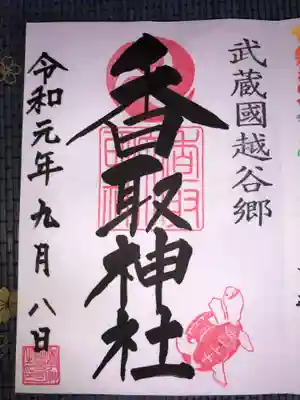 武蔵國越谷郷
香取神社
令和元年九月八日